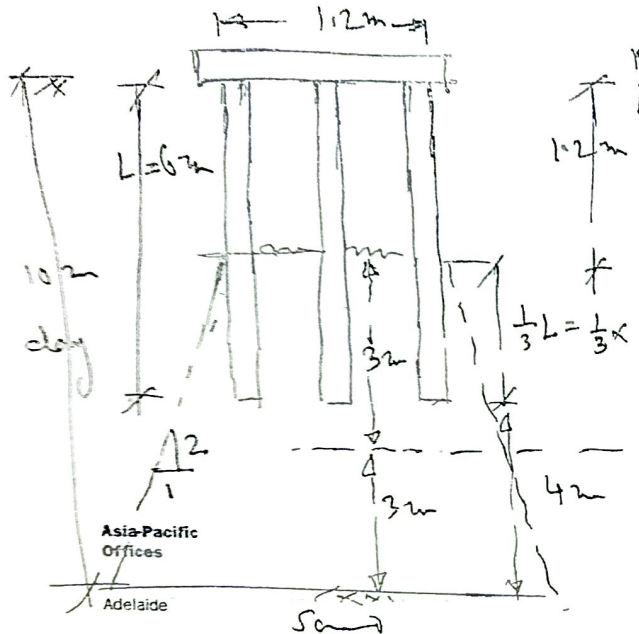 1.2m
L=6m
1.2m
10m
clay
1/3 L = 1/3 x
3m
2
1
3m
4m
Asia-Pacific
Offices
Adelaide
Sand